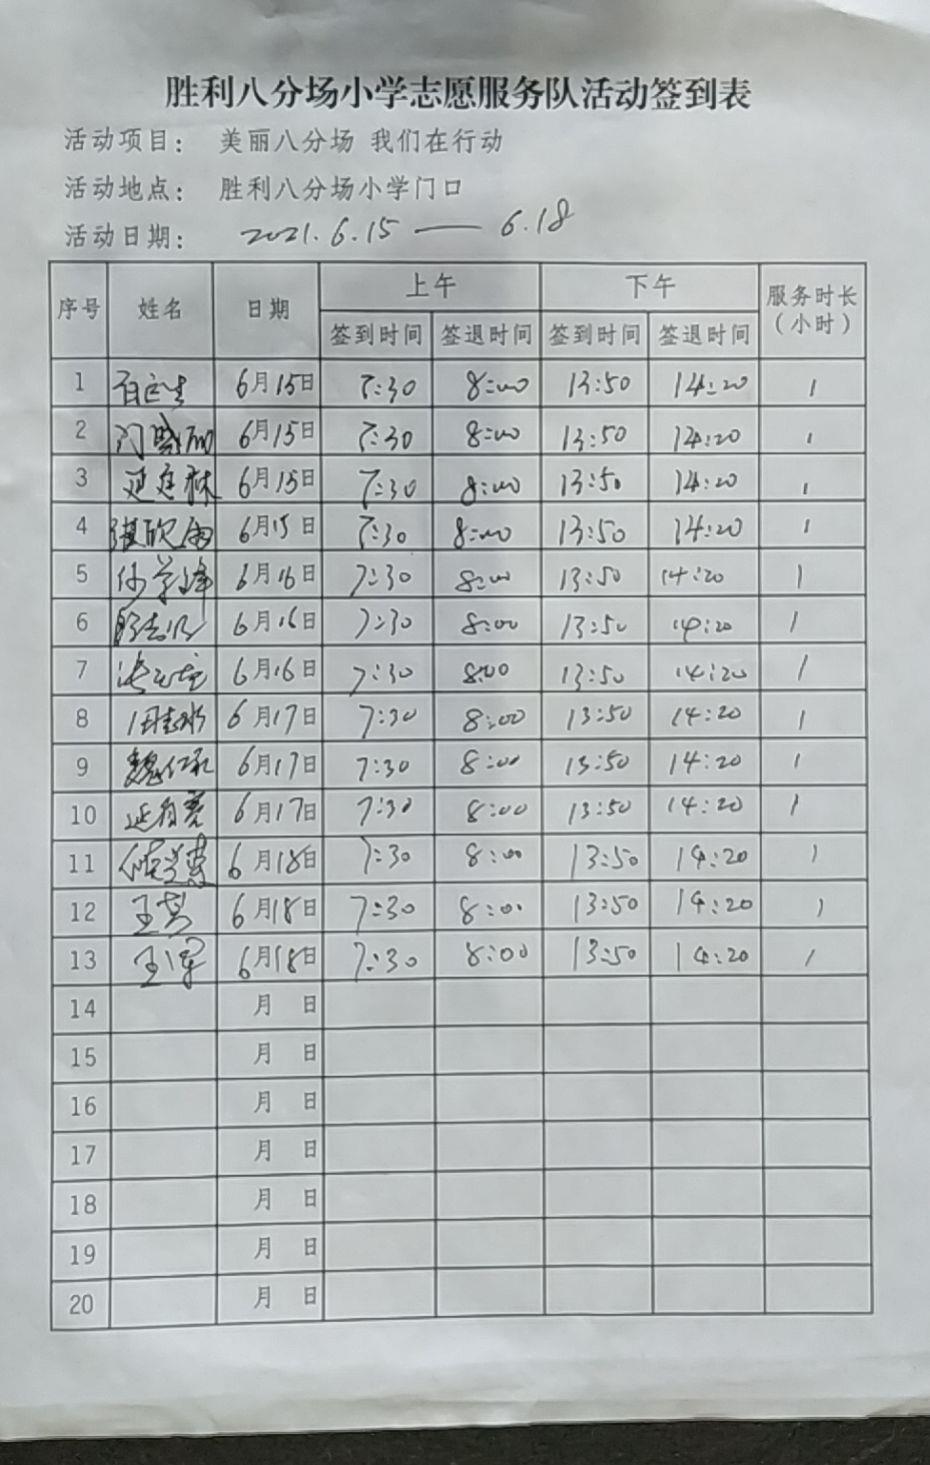 胜利八分场小学志愿服务队活动签到表
活动项目： 美丽八分场 我们在行动
活动地点： 胜利八分场小学门口
活动日期： 2021.6.15 — 6.18
序号 姓名 日期 上午 下午 服务时长（小时）
签到时间 签退时间 签到时间 签退时间
1 6月15日 7:30 8:00 13:50 14:20 1
2 6月15日 7:30 8:00 13:50 14:20 1
3 6月15日 7:30 8:00 13:50 14:20 1
4 6月15日 7:30 8:00 13:50 14:20 1
5 6月16日 7:30 8:00 13:50 14:20 1
6 6月16日 7:30 8:00 13:50 14:20 1
7 6月16日 7:30 8:00 13:50 14:20 1
8 6月17日 7:30 8:00 13:50 14:20 1
9 6月17日 7:30 8:00 13:50 14:20 1
10 6月17日 7:30 8:00 13:50 14:20 1
11 6月18日 7:30 8:00 13:50 14:20 1
12 6月18日 7:30 8:00 13:50 14:20 1
13 王军 6月18日 7:30 8:00 13:50 14:20 1
14 月 日
15 月 日
16 月 日
17 月 日
18 月 日
19 月 日
20 月 日